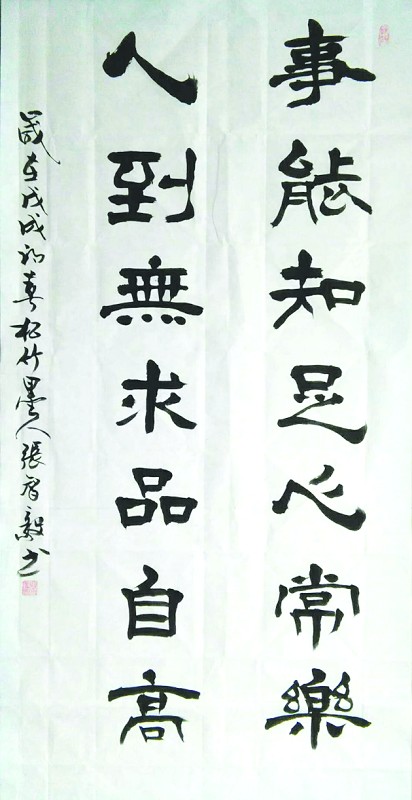 事能知足心常樂
人到無求品自高
歲在戊戌初春松竹墨人張毅书